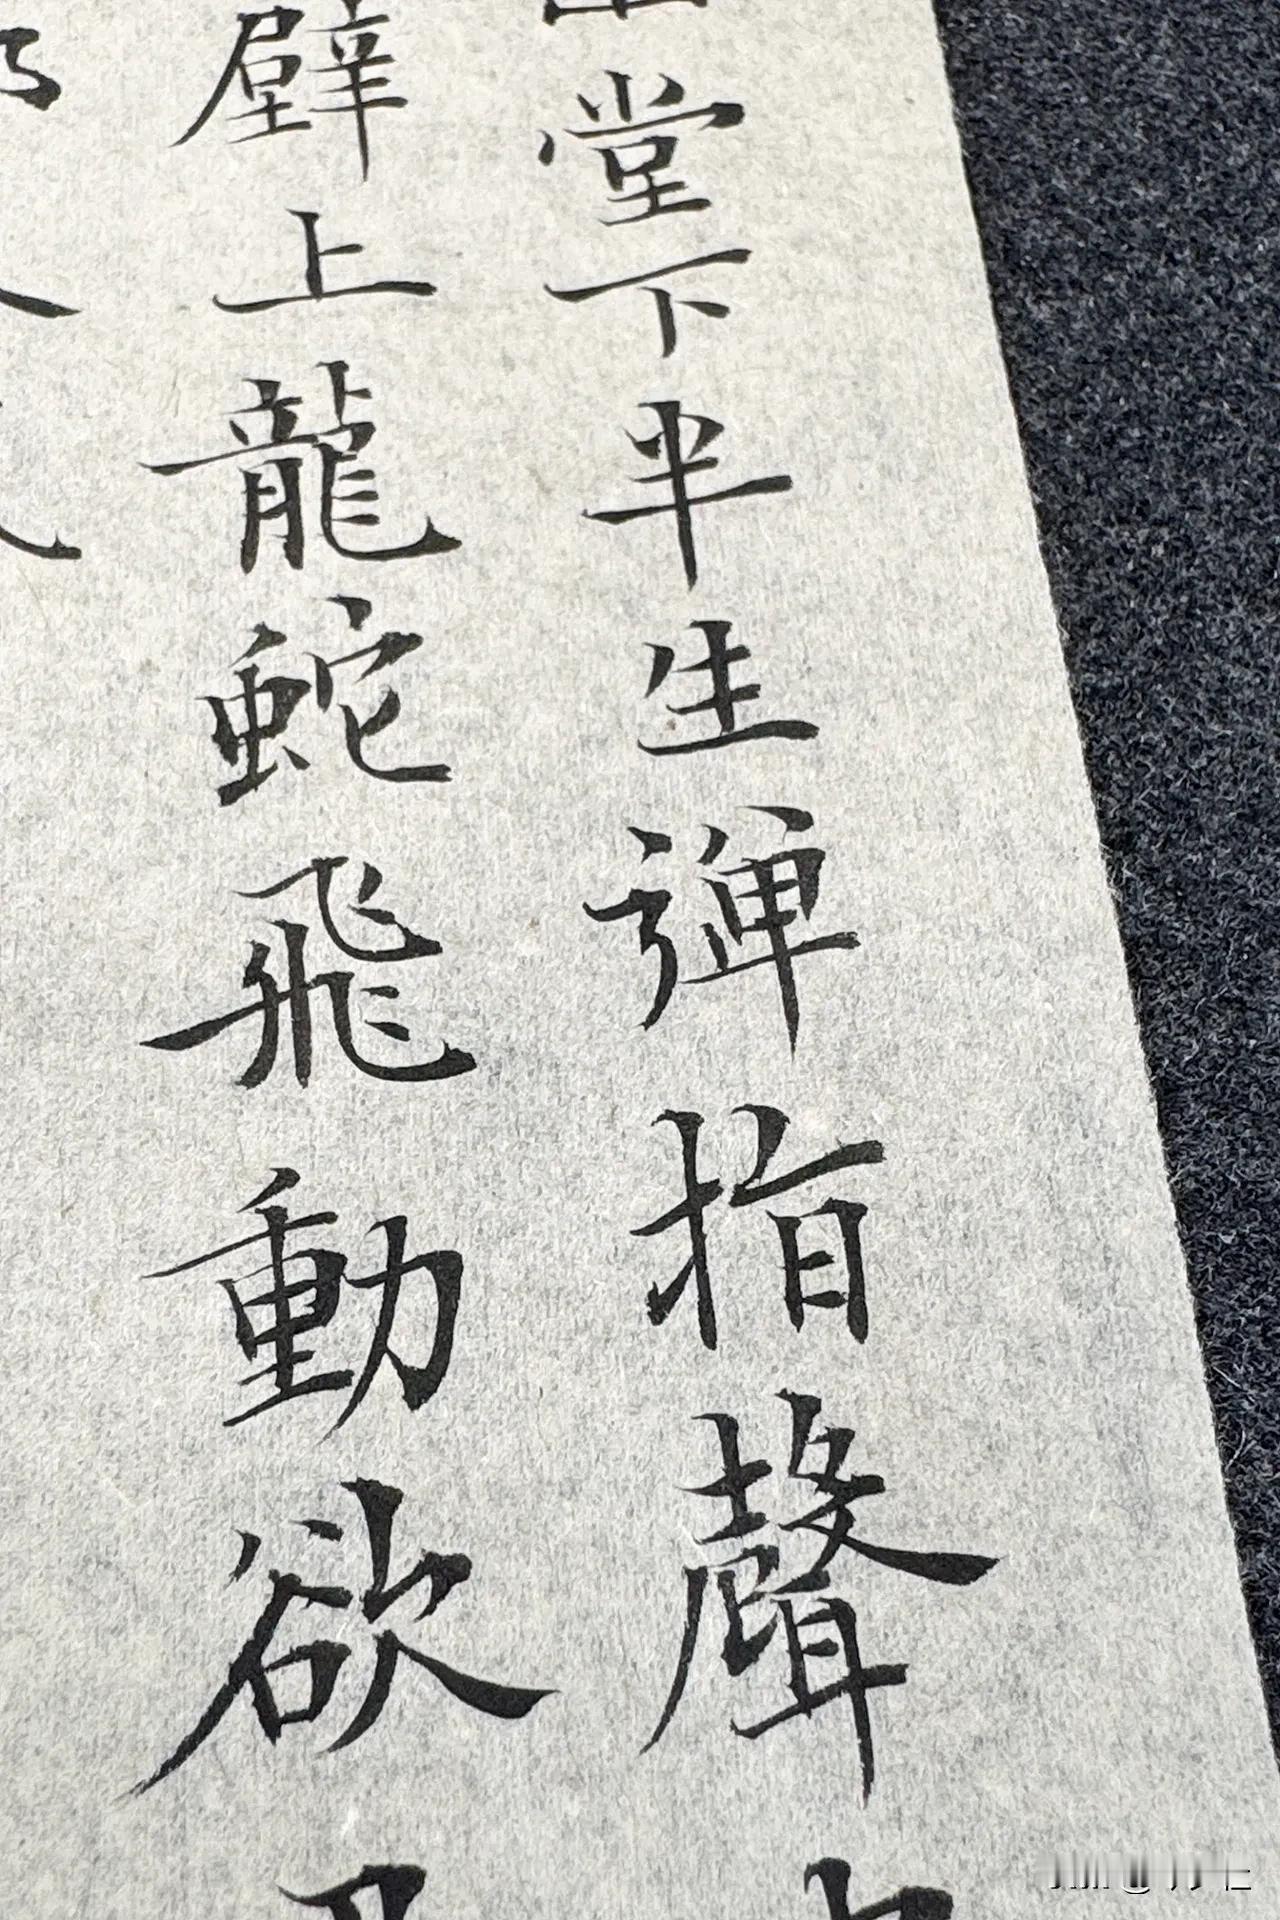 堂下半生彈指聲
壁上龍蛇飛動欲